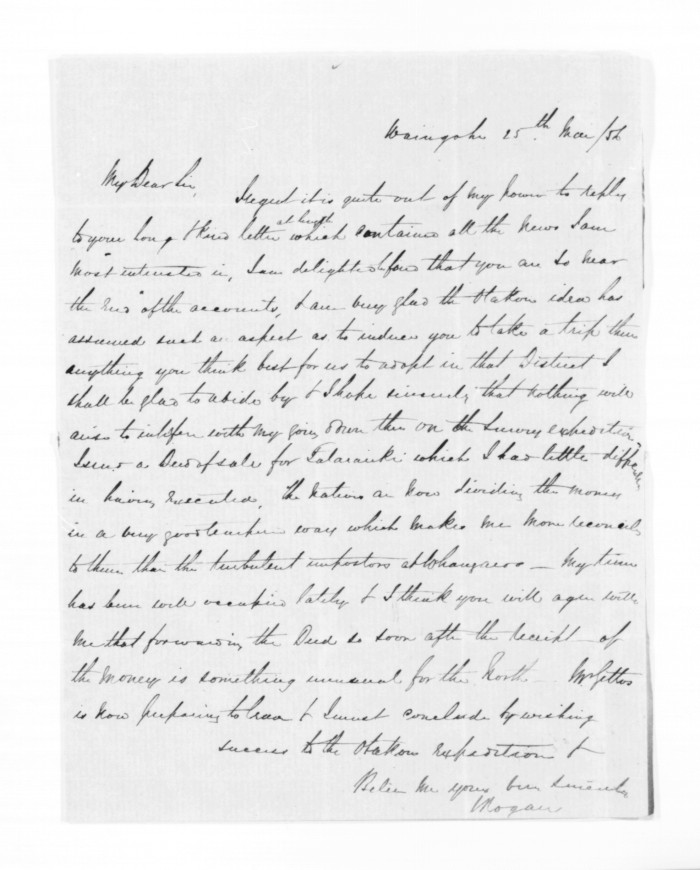 25th Mar /56
My Dear Sir,
I regret it is quite out of my power to reply
to your long & kind letter at length which contained all the News I am
"Most interested in, I am delighted that you are so near
the End" of the accounts, & am very glad the Otakou idea has
assumed such an aspect as to induce you to take a trip there
anything you think best for us to adopt in that District I
shall be glad to abide by & I hope sincerely that nothing will
arise to interfere with my going down then on the Survey expedition
I send a Deed of sale for which I had little difficulty
in having executed, the Natives are now dividing the money
in a very good temper way which makes me more reconciled
to them than the turbulent impostors at Whangarei — My time
has been well occupied lately & I think you will agree with
me that forwarding the Deed so soon after the receipt of
the Money is something unusual for the North —
is now preparing to leave & I must conclude by wishing
success to the Otakou Expedition &
Believe me yours very sincerely
Rogan